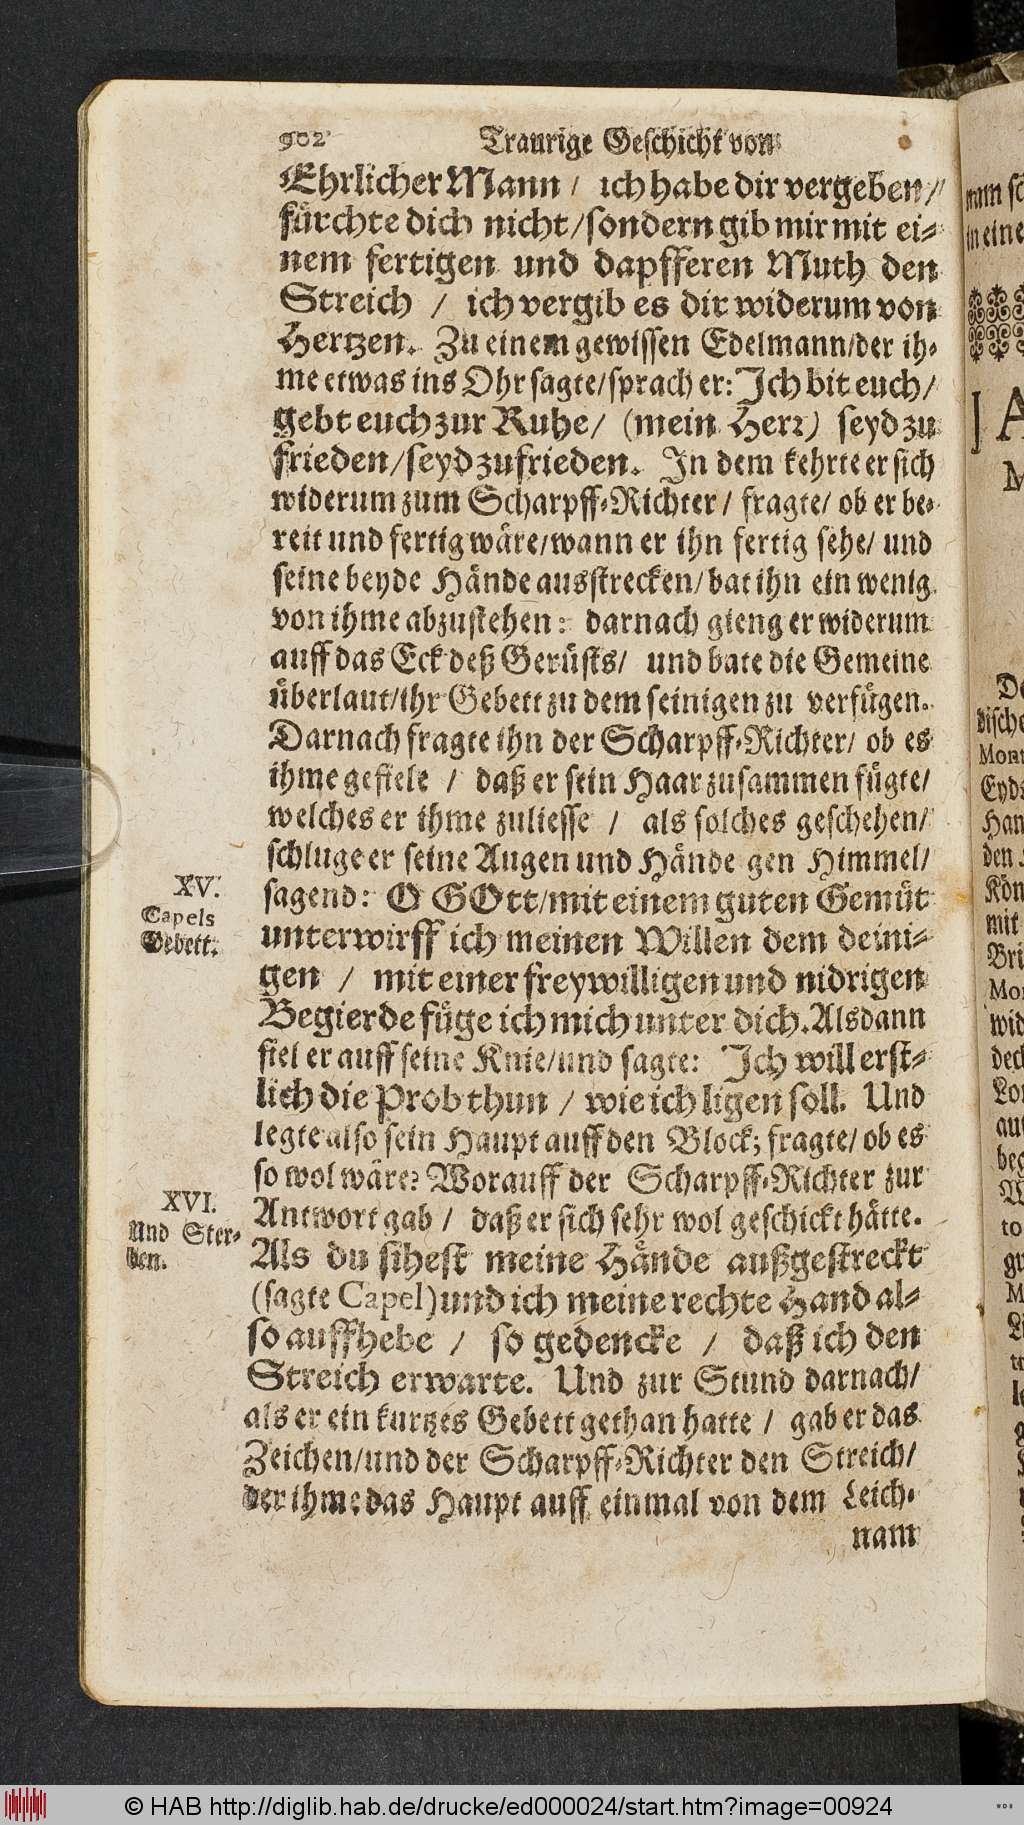 902 Traurige Geschicht von
Ehrlicher Mann / ich habe dir vergeben /
fürchte dich nicht / sondern gib mir mit ei-
nem fertigen und dapfferen Muth den
Streich / ich vergib es dir widerum von
Hertzen. Zu einem gewissen Edelmann/der ih-
me etwas ins Ohr sagte/sprach er: Ich bit euch/
gebt euch zur Ruhe/ (mein Herr) seyd zu
frieden/seyd zufrieden. In dem kehrte er sich
widerum zum Scharpff-Richter/ fragte/ ob er be-
reit und fertig wäre/wann er ihn fertig sehe/ und
seine beyde Hände ausstrecken/ bat ihn ein wenig
von ihme abzustehen: darnach gieng er widerum
auff das Eck deß Gerüsts/ und bate die Gemeine
überlaut/ihr Gebett zu dem seinigen zu verfügen.
Darnach fragte ihn der Scharpff-Richter/ ob es
ihme gefiele / daß er sein Haar zusammen fügte/
welches er ihme zuliesse / als solches geschehen/
schluge er seine Augen und Hände gen Himmel/
XV.
Capels
Gebett.
sagend: O GOtt/mit einem guten Gemüt
unterwirff ich meinen Willen dem deini-
gen / mit einer freywilligen und nidrigen
Begierde füge ich mich unter dich. Alsdann
fiel er auff seine Knie/und sagte: Ich will erst-
lich die Prob thun / wie ich ligen soll. Und
legte also sein Haupt auff den Block; fragte/ ob es
so wol wäre? Worauff der Scharpff-Richter zur
XVI.
Und Ster-
ben.
Antwort gab / daß er sich sehr wol geschickt hätte.
Als du sihest meine Hände außgestreckt
(sagte Capel) und ich meine rechte Hand al-
so auffhebe / so gedencke / daß ich den
Streich erwarte. Und zur Stund darnach/
als er ein kurtzes Gebett gethan hatte / gab er das
Zeichen/und der Scharpff-Richter den Streich/
der ihme das Haupt auff einmal von dem Leich-
nam
© HAB http://diglib.hab.de/drucke/ed000024/start.htm?image=00924